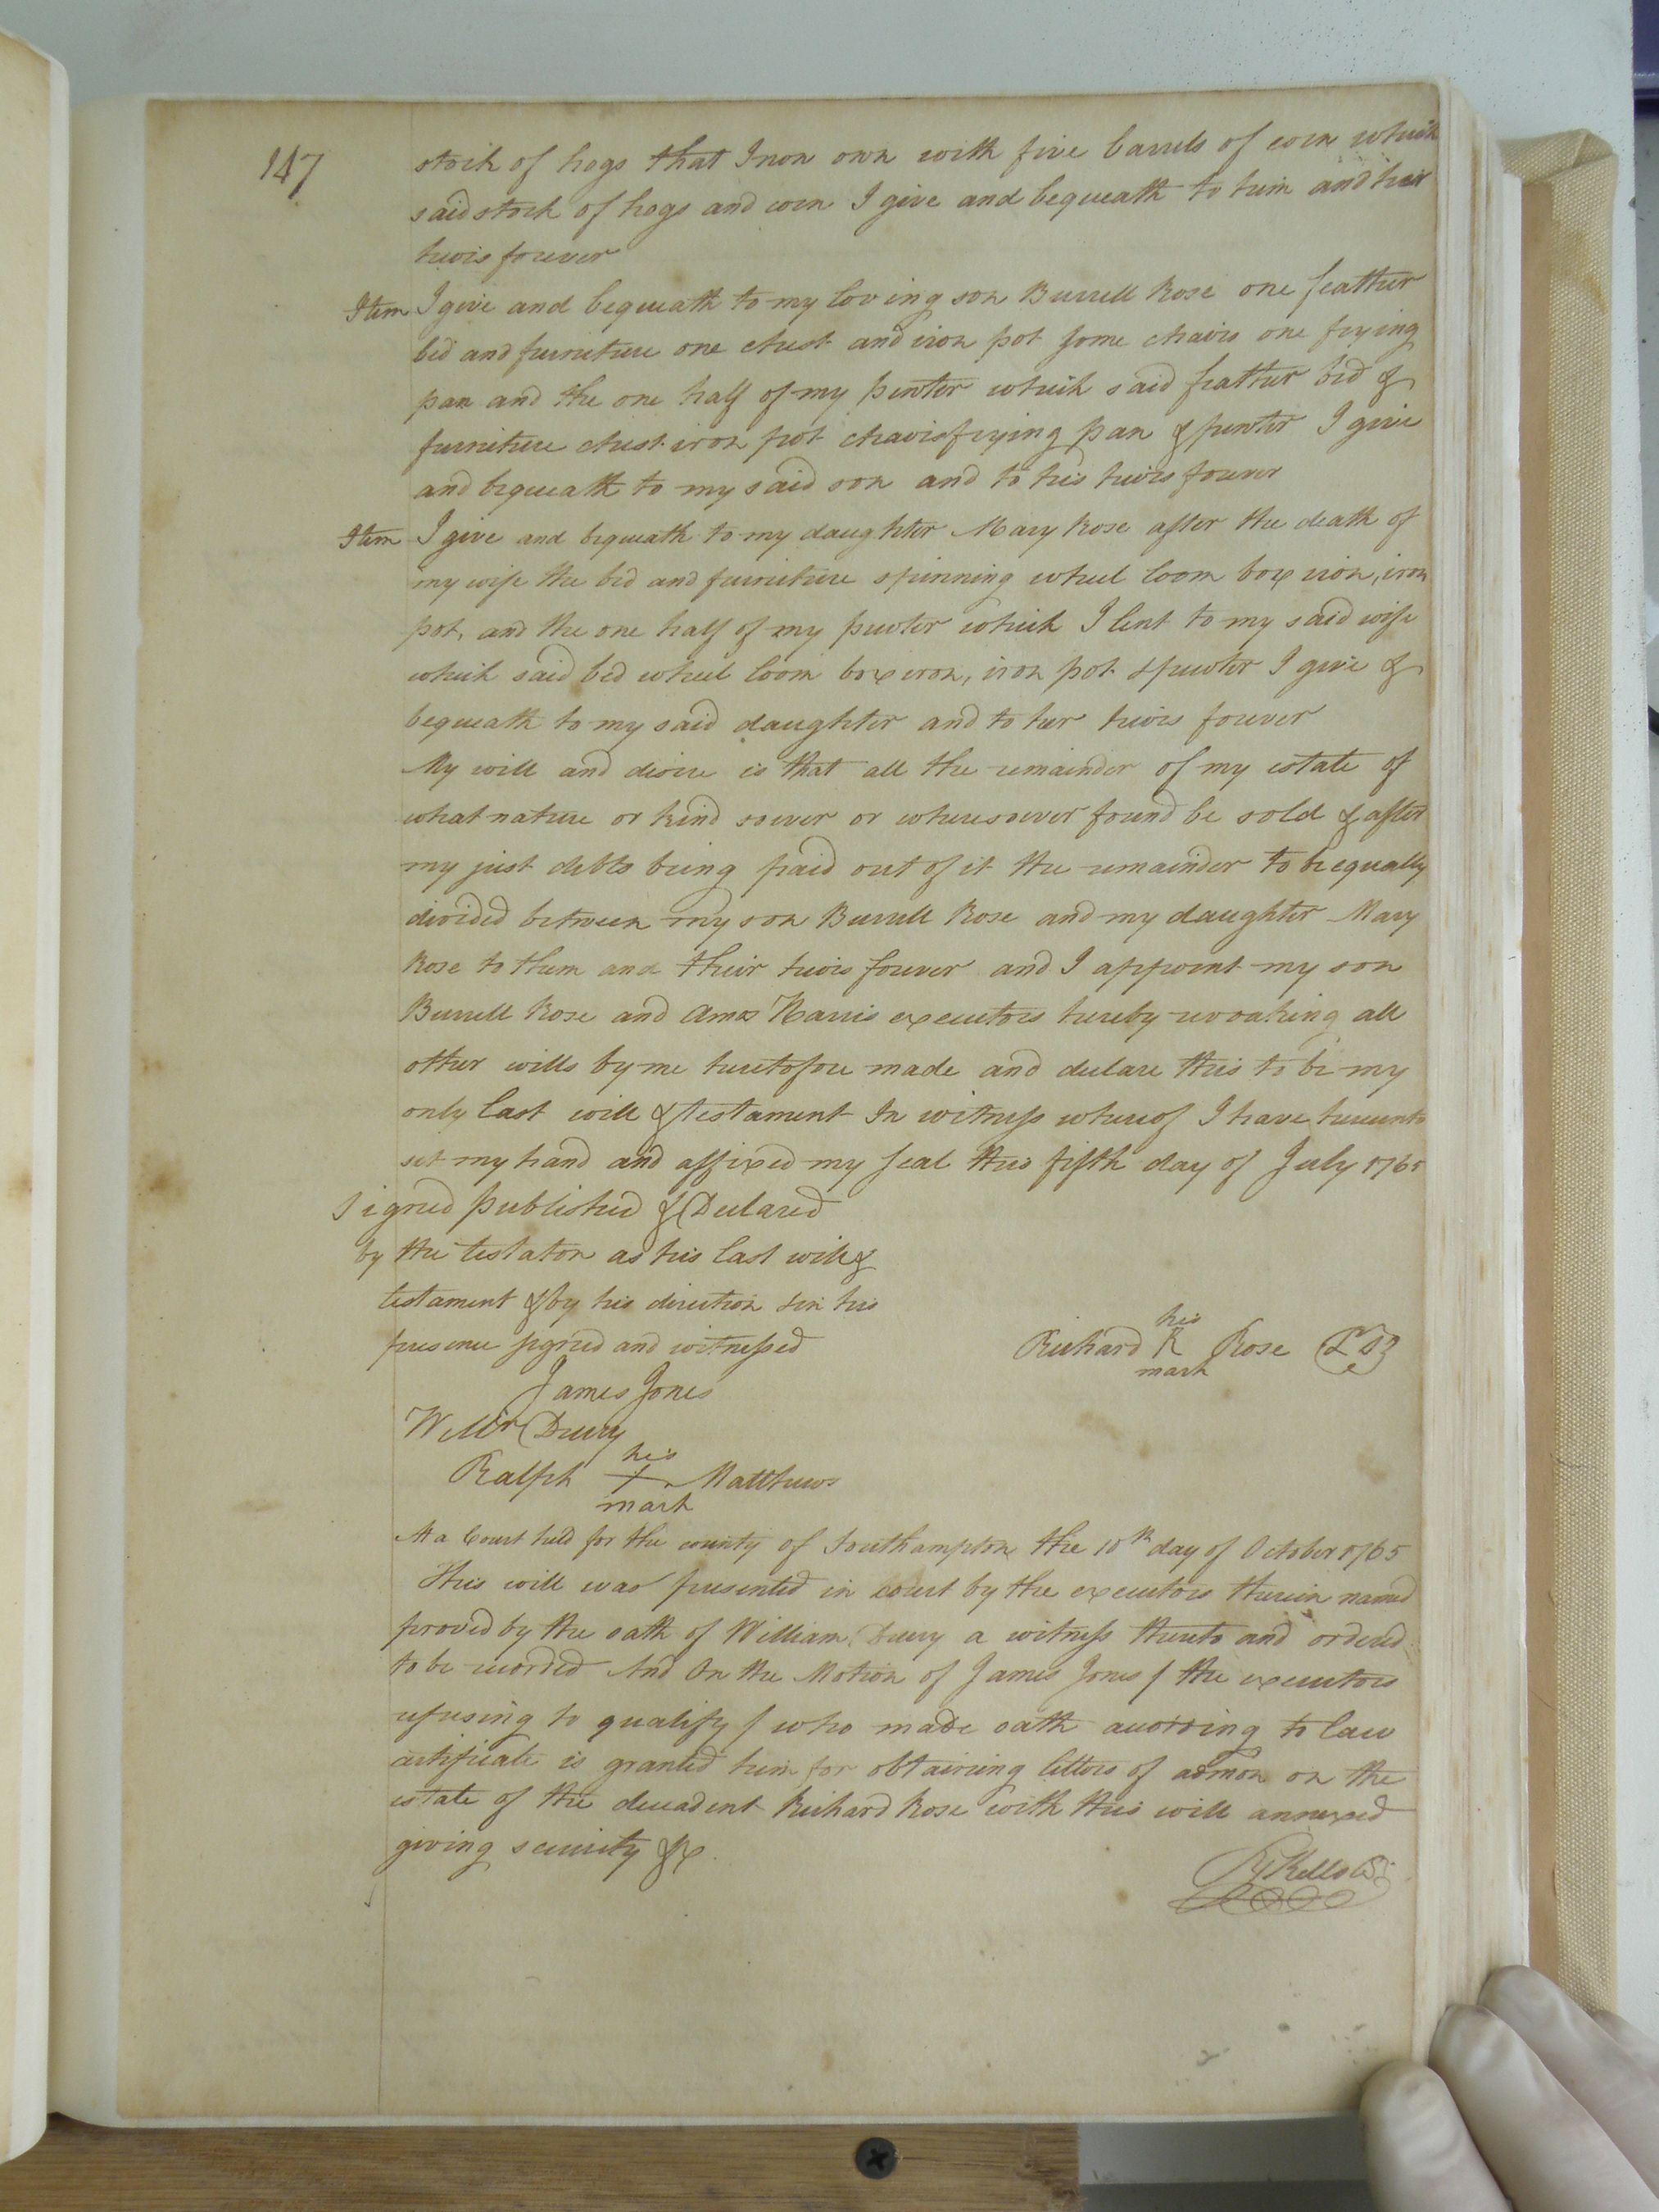 147
stock of hogs that I now own with five barrels of corn which
said stock of hogs and corn I give and bequeath to him and heir
heirs forever
Item I give and bequeath to my loving son Burrell Rose one feather
bed and furniture one chest and iron pot some chairs one frying
pan and the one half of my pewter which said feather bed &
furniture chest iron pot chairs frying pan & pewter I give
and bequeath to my said son and to his heirs forever
Item I give and bequeath to my daughter Mary Rose after the death of
my wife the bed and furniture spinning wheel loom box iron, iron
pot, and the one half of my pewter which I lent to my said wife
which said bed wheel loom box iron, iron pot & pewter I give &
bequeath to my said daughter and to her heirs forever
My will and desire is that all the remainder of my estate of
what nature or kind soever or wheresoever found be sold & after
my just debts being paid out of it the remainder to be equally
divided between my son Burrell Rose and my daughter Mary
Rose to them and their heirs forever and I appoint my son
Burrell Rose and Amos Harris executors hereby revoaking all
other wills by me heretofore made and declare this to be my
only last will & testament In witness whereof I have hereunto
set my hand and affixed my seal this fifth day of July 1765
Signed published & Declared
by the testator as his last will &
testament & by his direction & in his
presence signed and witnessed
his
Richard R Rose LS
mark
James Jones
Willm Drury
his
Ralph + Matthews
mark
At a Court held for the county of Southampton the 10th day of October 1765
This will was presented in court by the executors therein named
proved by the oath of William Drury a witness thereto and ordered
to be recorded And On the Motion of James Jones / the executors
refusing to qualify / who made oath according to law
certificate is granted him for obtaining letters of admon on the
estate of the decadent Richard Rose with this will annexed
giving security &c.